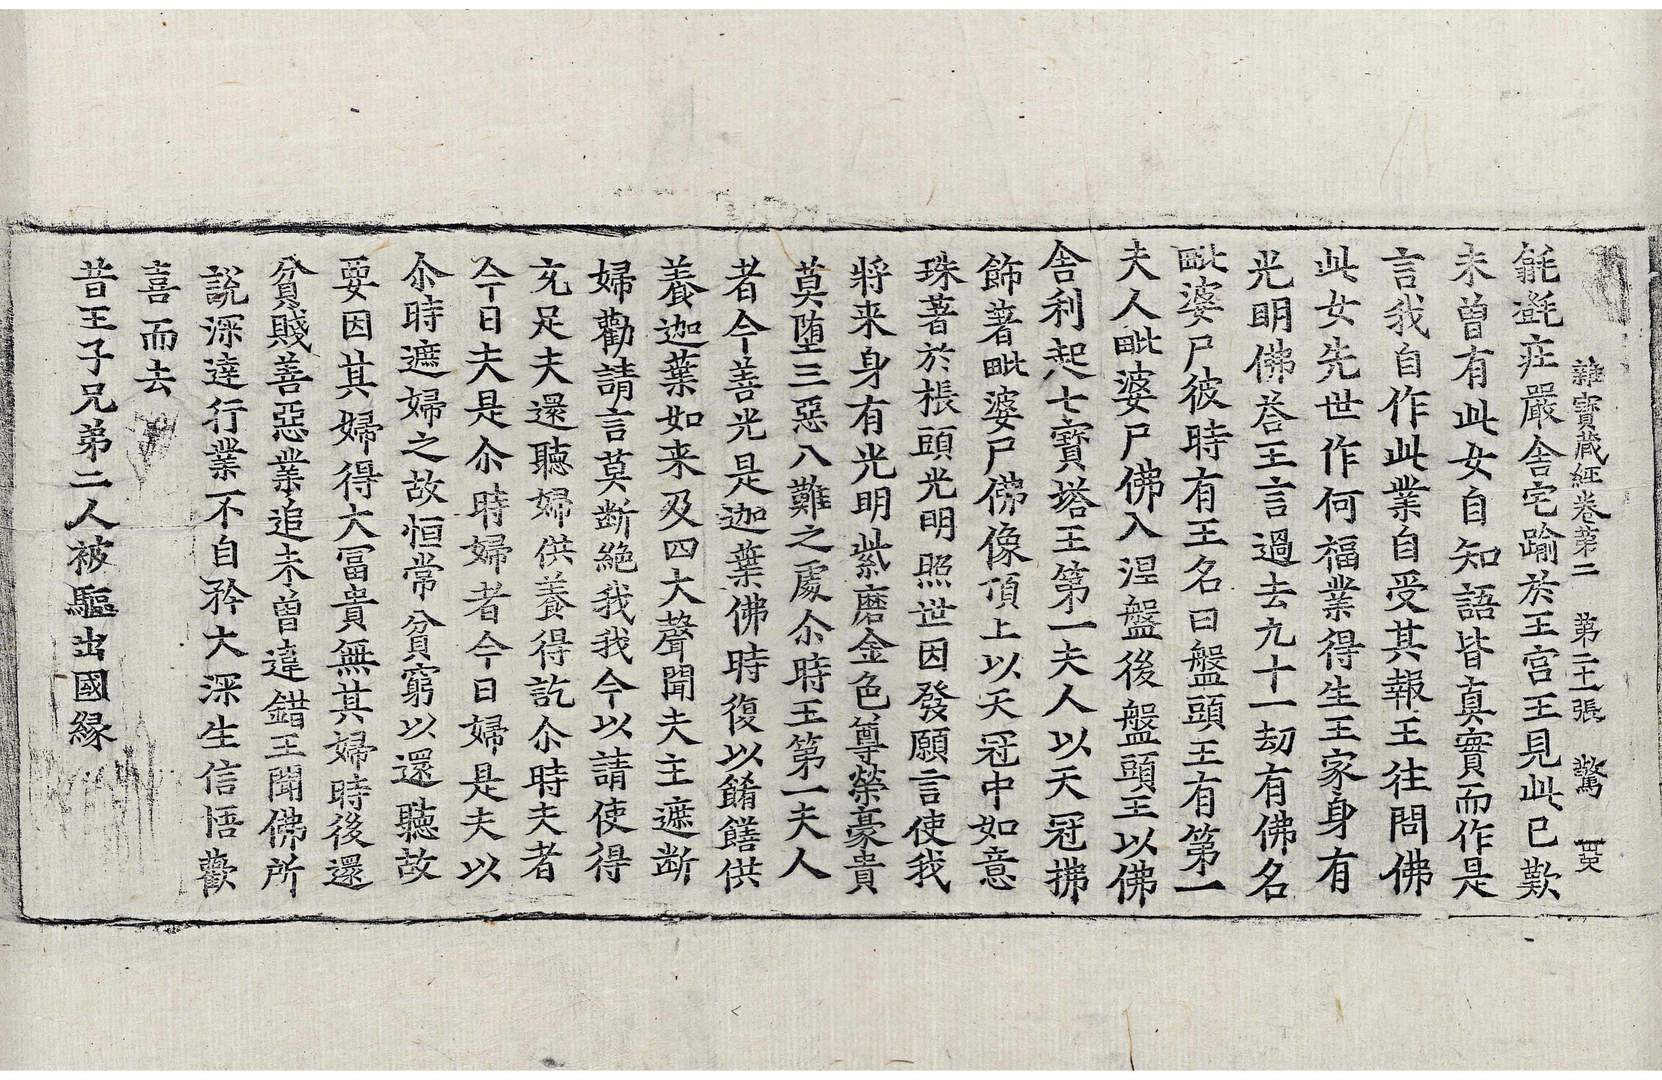 雜寶藏經卷第二　第二十張　驚
毹㲪莊嚴舍宅踰於王宮王見此已歎
未曾有此女自知語皆真實而作是
言我自作此業自受其報王往問佛
此女先世作何福業得生王家身有
光明佛荅王言過去九十一劫有佛名
毗婆尸彼時有王名曰盤頭王有第一
夫人毗婆尸佛入涅盤後盤頭王以佛
舍利起七寶塔王第一夫人以天冠拂
飾著毗婆尸佛像頂上以天冠中如意
珠著於棖頭光明照世因發願言使我
將来身有光明紫磨金色尊榮豪貴
莫墮三惡八難之處尒時王第一夫人
者今善光是迦葉佛時復以餚饍供
養迦葉如来及四大聲聞夫主遮斷
婦勸請言莫斷絕我我今以請使得
充足夫還聽婦供養得訖尒時夫者
今日夫是尒時婦者今日婦是夫以
尒時遮婦之故恒常貧窮以還聽故
要因其婦得大冨貴無其婦時後還
貧賤善惡業追未曾違錯王聞佛所
說深達行業不自矜大深生信悟歡
喜而去
昔王子兄弟二人被驅出國緣